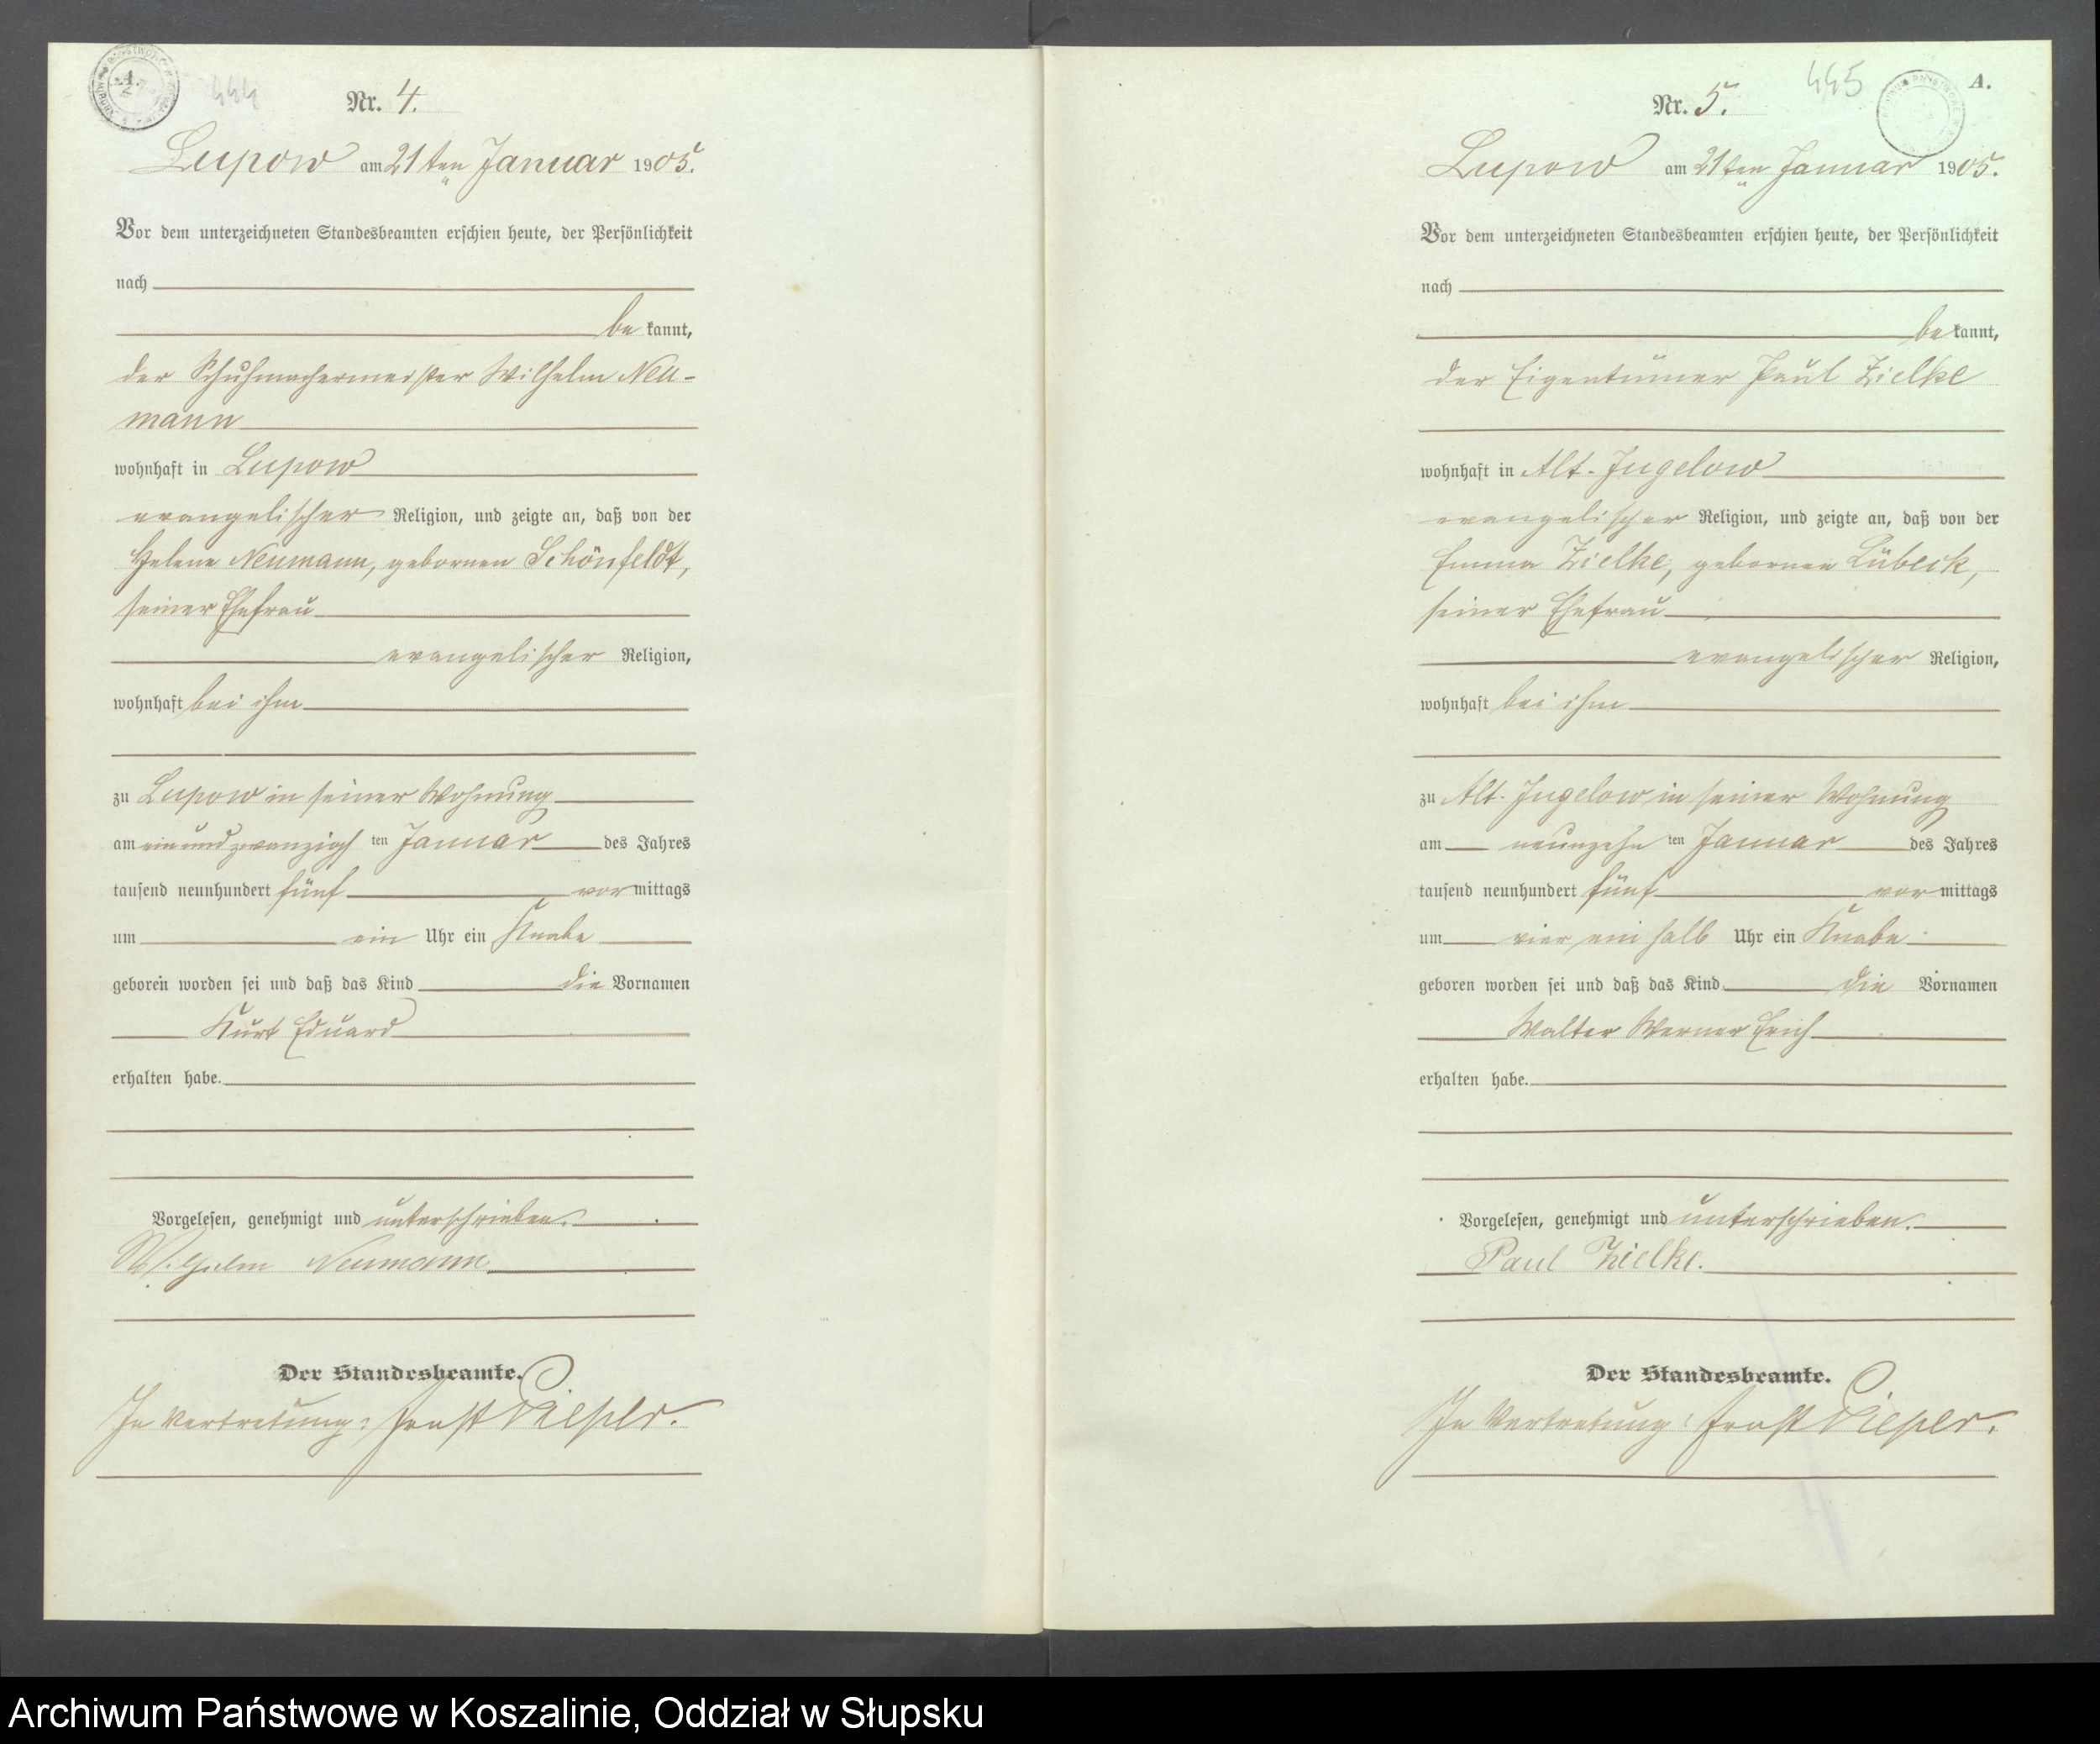 444
Nr. 4.
Lupow am 21ten Januar 1905.
Vor dem unterzeichneten Standesbeamten erschien heute, der Persönlichkeit
nach
be kannt,
der Schuhmachermeister Wilhelm Neu-
mann
wohnhaft in Lupow
evangelischer Religion, und zeigte an, daß von der
Helene Neumann, gebornen Schönfeldt,
seiner Ehefrau
evangelischer Religion,
wohnhaft bei ihm
zu Lupow in seiner Wohnung
am ein und zwanzigsten Januar des Jahres
tausend neunhundert fünf vor mittags
um ein Uhr ein Knabe
geboren worden sei und daß das Kind die Vornamen
Kurt Eduard
erhalten habe.
Vorgelesen, genehmigt und unterschrieben.
Wilhelm Neumann
Der Standesbeamte.
In Vertretung: Ernst Pieper.
445
A.
Nr. 5.
Lupow am 21ten Januar 1905.
Vor dem unterzeichneten Standesbeamten erschien heute, der Persönlichkeit
nach
be kannt,
der Eigentümer Paul Zielke
wohnhaft in Alt-Jugelow
evangelischer Religion, und zeigte an, daß von der
Emma Zielke, gebornen Lübeck,
seiner Ehefrau
evangelischer Religion,
wohnhaft bei ihm
zu Alt-Jugelow in seiner Wohnung
am neunzehn ten Januar des Jahres
tausend neunhundert fünf vor mittags
um vier ein halb Uhr ein Knabe
geboren worden sei und daß das Kind die Vornamen
Walter Werner Erich
erhalten habe.
Vorgelesen, genehmigt und unterschrieben.
Paul Zielke.
Der Standesbeamte.
In Vertretung: Ernst Pieper.
Archiwum Państwowe w Koszalinie, Oddział w Słupsku